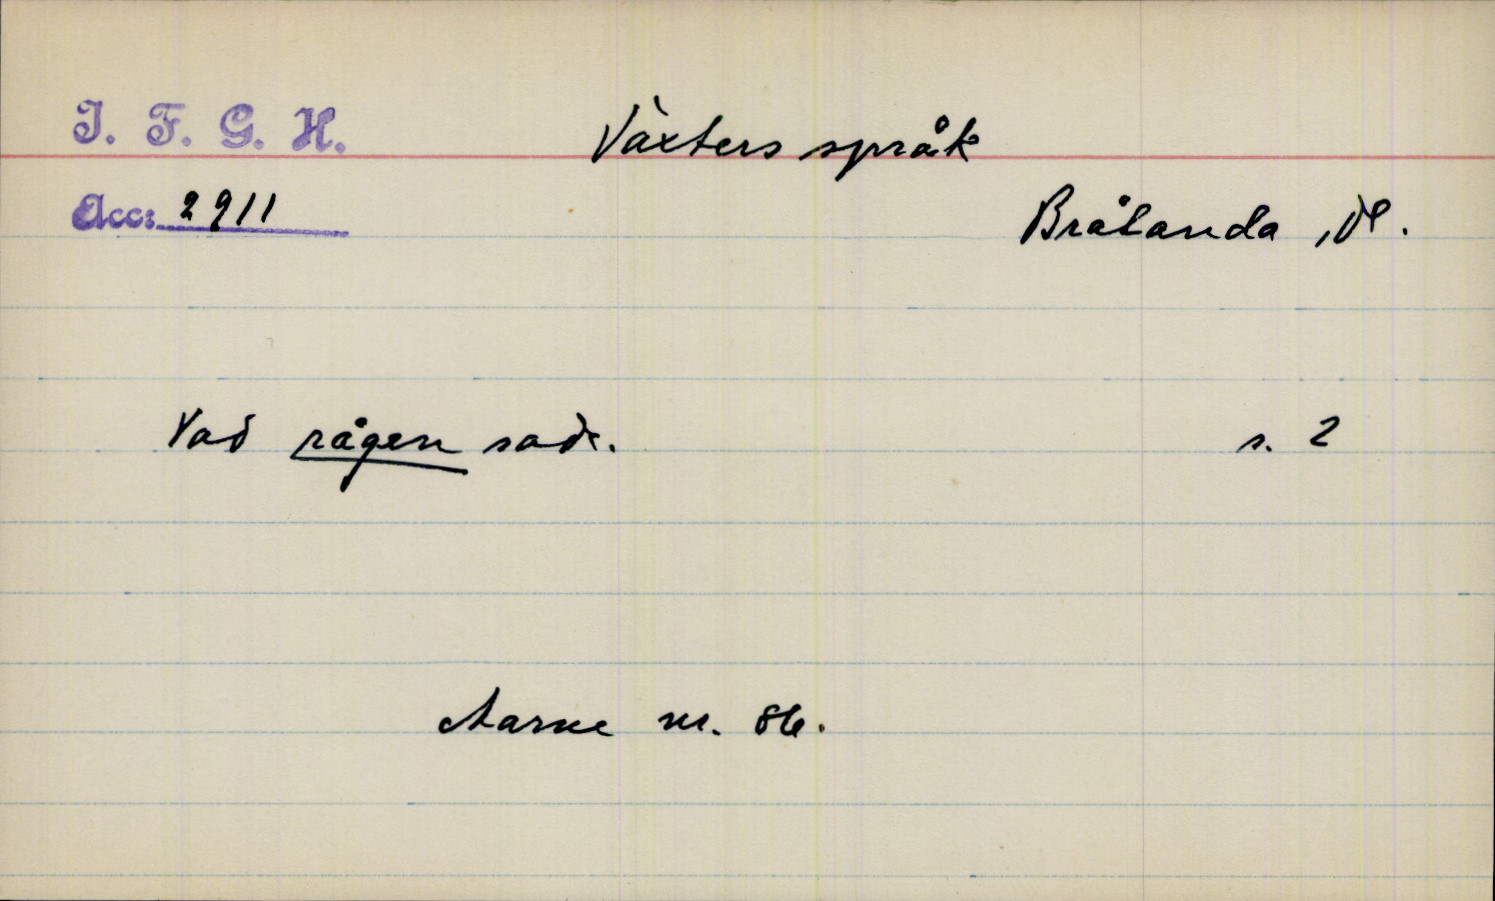 I. F. G. H.
Växters språk
Acc: 2911
Brålanda, Dl.
Vad rågen sade.
s. 2
Aarne nr. 86.